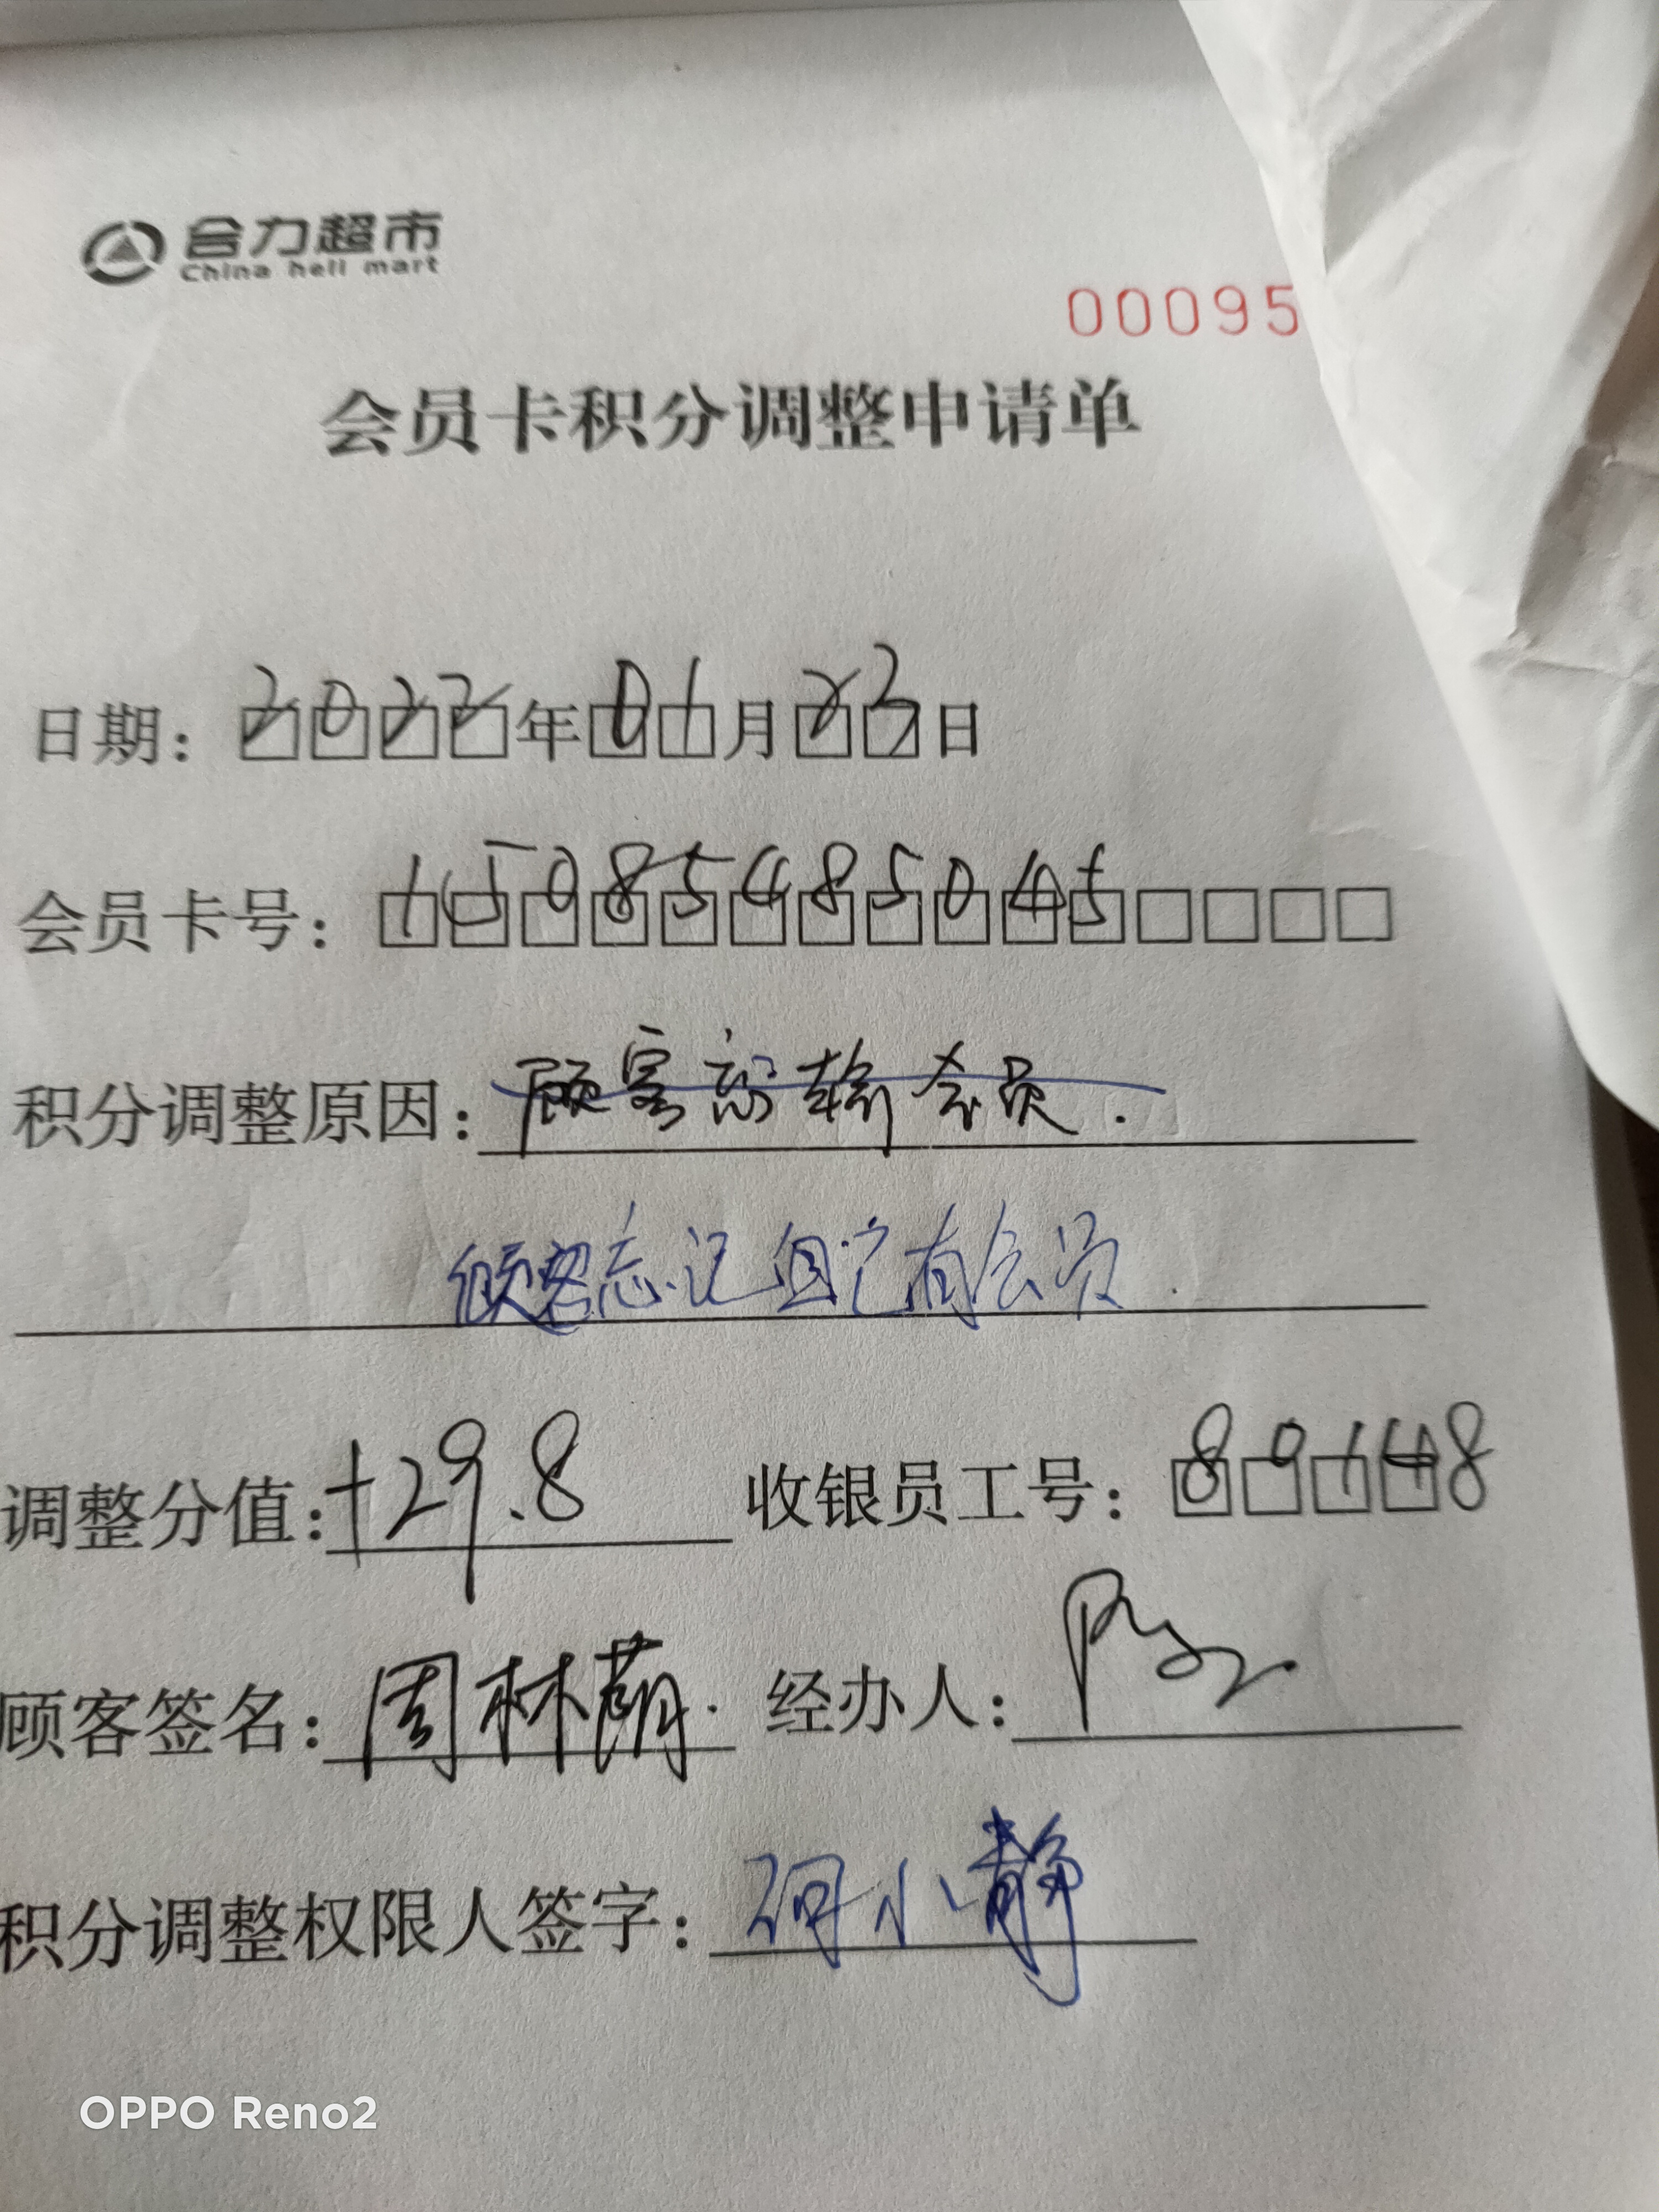 合力超市
China heli mart
00095
会员卡积分调整申请单
日期：2022年01月23日
会员卡号：15085485045
积分调整原因：顾客忘输会员.
顾客忘记自己有会员.
调整分值：+29.8 收银员工号：80148
顾客签名：周林萌. 经办人：
积分调整权限人签字：小静
OPPO Reno2